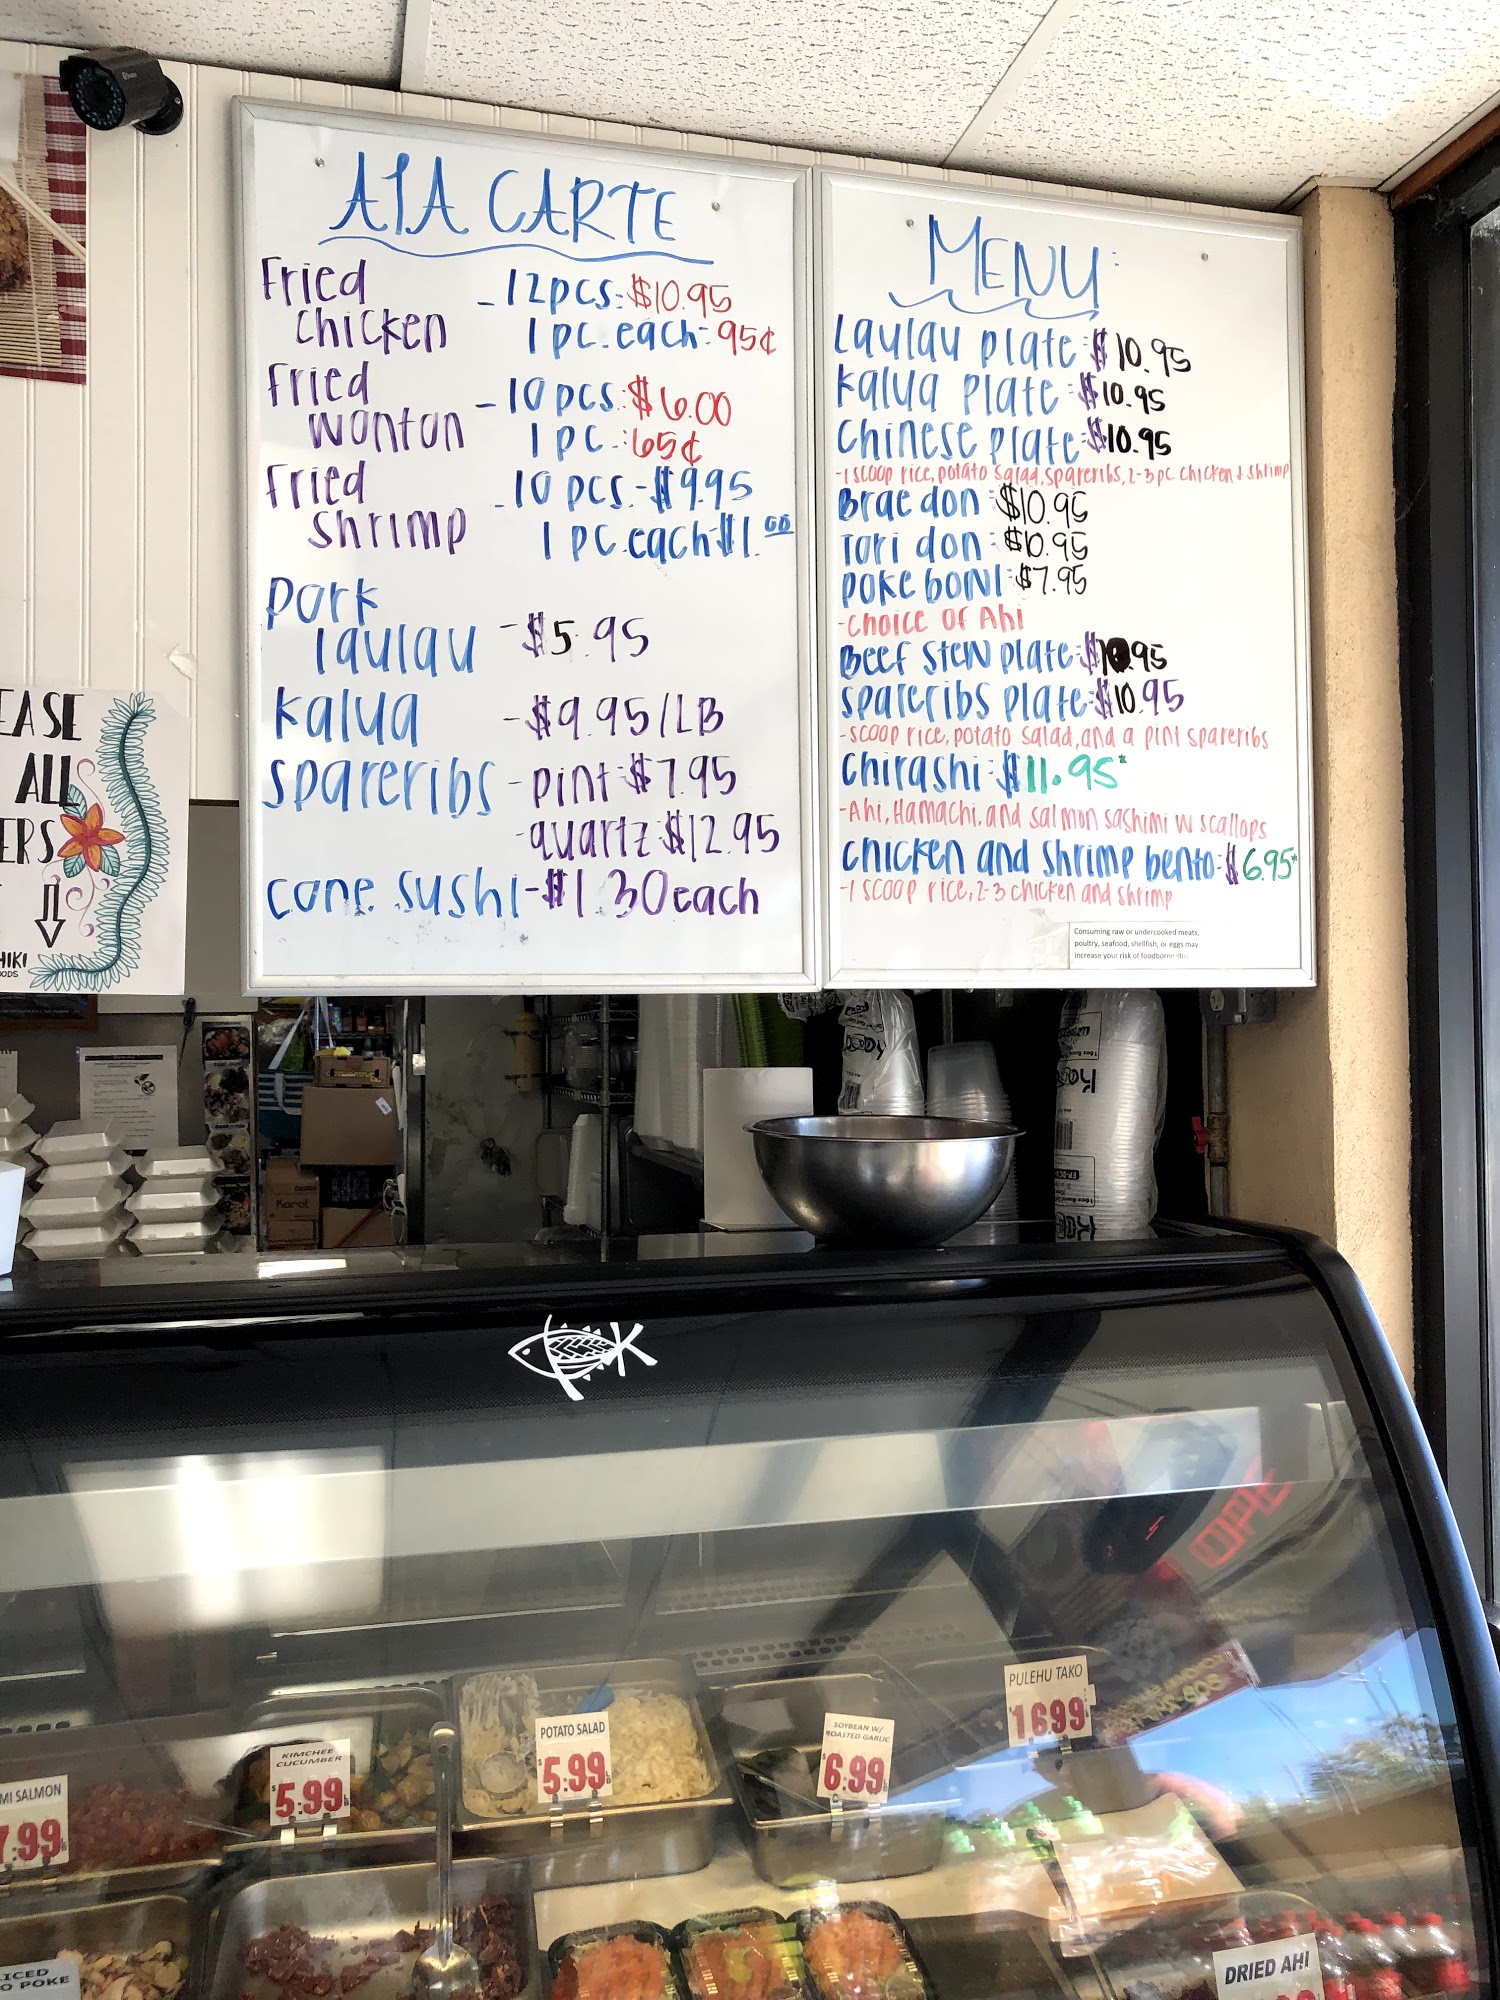 A LA CARTE
Fried
chicken
- 12 pcs: $10.95
1 pc. each: 95¢
Fried
wonton
- 10 pcs: $6.00
1 pc -: 65¢
Fried
shrimp
- 10 pcs. - $9.95
1 pc. each $1.00
pork
laulau
- $5.95
kalua
- $9.95/LB
spareribs - pint: $7.95
- quartz: $12.95
cone sushi - $1.30 each
MENU:
Laulau plate: $10.95
Kalua plate: $10.95
Chinese plate: $10.95
-1 scoop rice, potato salad, spareribs, 2-3 pc. chicken & shrimp
Brae don: $10.95
Tori don: $10.95
Poke bowl: $7.95
-choice of Ahi
Beef stew plate: $10.95
spareribs plate: $10.95
-scoop rice, potato salad, and a pint spareribs
Chirashi: $11.95*
-Ahi, Hamachi, and salmon sashimi w scallops
chicken and shrimp bento: $6.95*
-1 scoop rice, 2-3 chicken and shrimp
Consuming raw or undercooked meats,
poultry, seafood, shellfish, or eggs may
increase your risk of foodborne
EASE
ALL
ERS
HIKI
OODS
Karat
OPE
PULEHU TAKO
$16.99
POTATO SALAD
$5.99 LB
SOYBEAN W/
ROASTED GARLIC
$6.99
KIMCHEE
CUCUMBER
$5.99 LB
MI SALMON
7.99
ICED
O POKE
DRIED AHI